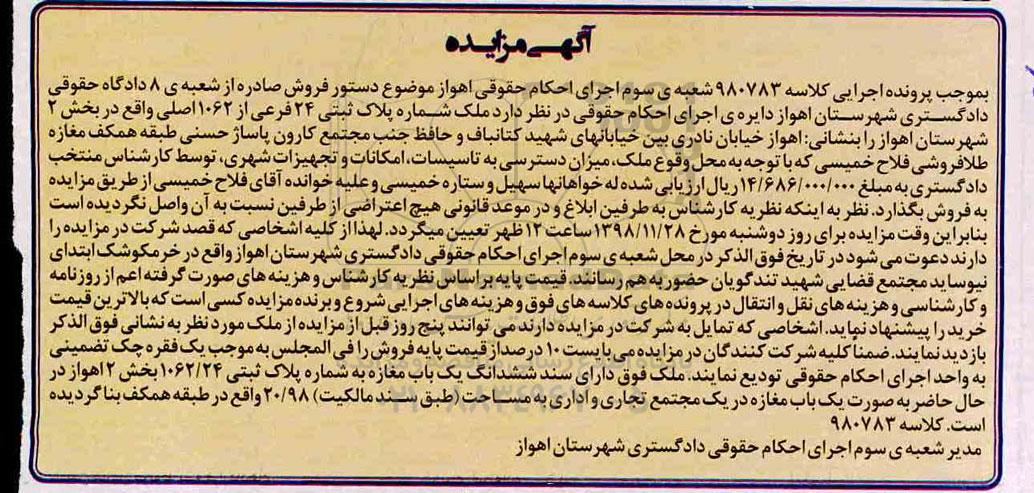 آگهی مزایده
بموجب پرونده اجرایی کلاسه ۹۸۰۷۸۳ شعبه ی سوم اجرای احکام حقوقی اهواز موضوع دستور فروش صادره از شعبه ی ۸ دادگاه حقوقی
دادگستری شهرستان اهواز دایره ی اجرای احکام حقوقی در نظر دارد ملک شماره پلاک ثبتی ۲۴ فرعی از ۱۰۶۲ اصلی واقع در بخش ۲
شهرستان اهواز را بنشانی: اهواز خیابان نادری بین خیابانهای شهید کتانباف و حافظ جنب مجتمع کارون پاساژ حسنی طبقه همکف مغازه
طلافروشی فلاح خمیسی که با توجه به محل وقوع ملک، میزان دسترسی به تاسیسات، امکانات و تجهیزات شهری، توسط کارشناس منتخب
دادگستری به مبلغ ۱۴/۶۸۶/۰۰۰/۰۰۰ ریال ارزیابی شده له خواهانها سهیل و ستاره خمیسی و علیه خوانده آقای فلاح خمیسی از طریق مزایده
به فروش بگذارد. نظر به اینکه نظریه کارشناس به طرفین ابلاغ و در موعد قانونی هیچ اعتراضی از طرفین نسبت به آن واصل نگردیده است
بنابراین وقت مزایده برای روز دوشنبه مورخ ۱۳۹۸/۱۱/۲۸ ساعت ۱۲ ظهر تعیین میگردد. لهذا از کلیه اشخاصی که قصد شرکت در مزایده را
دارند دعوت می شود در تاریخ فوق الذکر در محل شعبه ی سوم اجرای احکام حقوقی دادگستری شهرستان اهواز واقع در خرمکوشک ابتدای
نیوساید مجتمع قضایی شهید تندگویان حضور به هم رسانند. قیمت پایه بر اساس نظریه کارشناس و هزینه های صورت گرفته اعم از روزنامه
و کارشناسی و هزینه های نقل و انتقال در پرونده های کلاسه های فوق و هزینه های اجرایی شروع و برنده مزایده کسی است که بالاترین قیمت
خرید را پیشنهاد نماید. اشخاصی که تمایل به شرکت در مزایده دارند می توانند پنج روز قبل از مزایده از ملک مورد نظر به نشانی فوق الذکر
بازدید نمایند. ضمناً کلیه شرکت کنندگان در مزایده می بایست ۱۰ درصد از قیمت پایه فروش را فی المجلس به موجب یک فقره چک تضمینی
به واحد اجرای احکام حقوقی تودیع نمایند. ملک فوق دارای سند ششدانگ یک باب مغازه به شماره پلاک ثبتی ۱۰۶۲/۲۴ بخش ۲ اهواز در
حال حاضر به صورت یک باب مغازه در یک مجتمع تجاری و اداری به مساحت (طبق سند مالکیت) ۲۰/۹۸ واقع در طبقه همکف بنا گردیده
است. کلاسه ۹۸۰۷۸۳
مدیر شعبه ی سوم اجرای احکام حقوقی دادگستری شهرستان اهواز